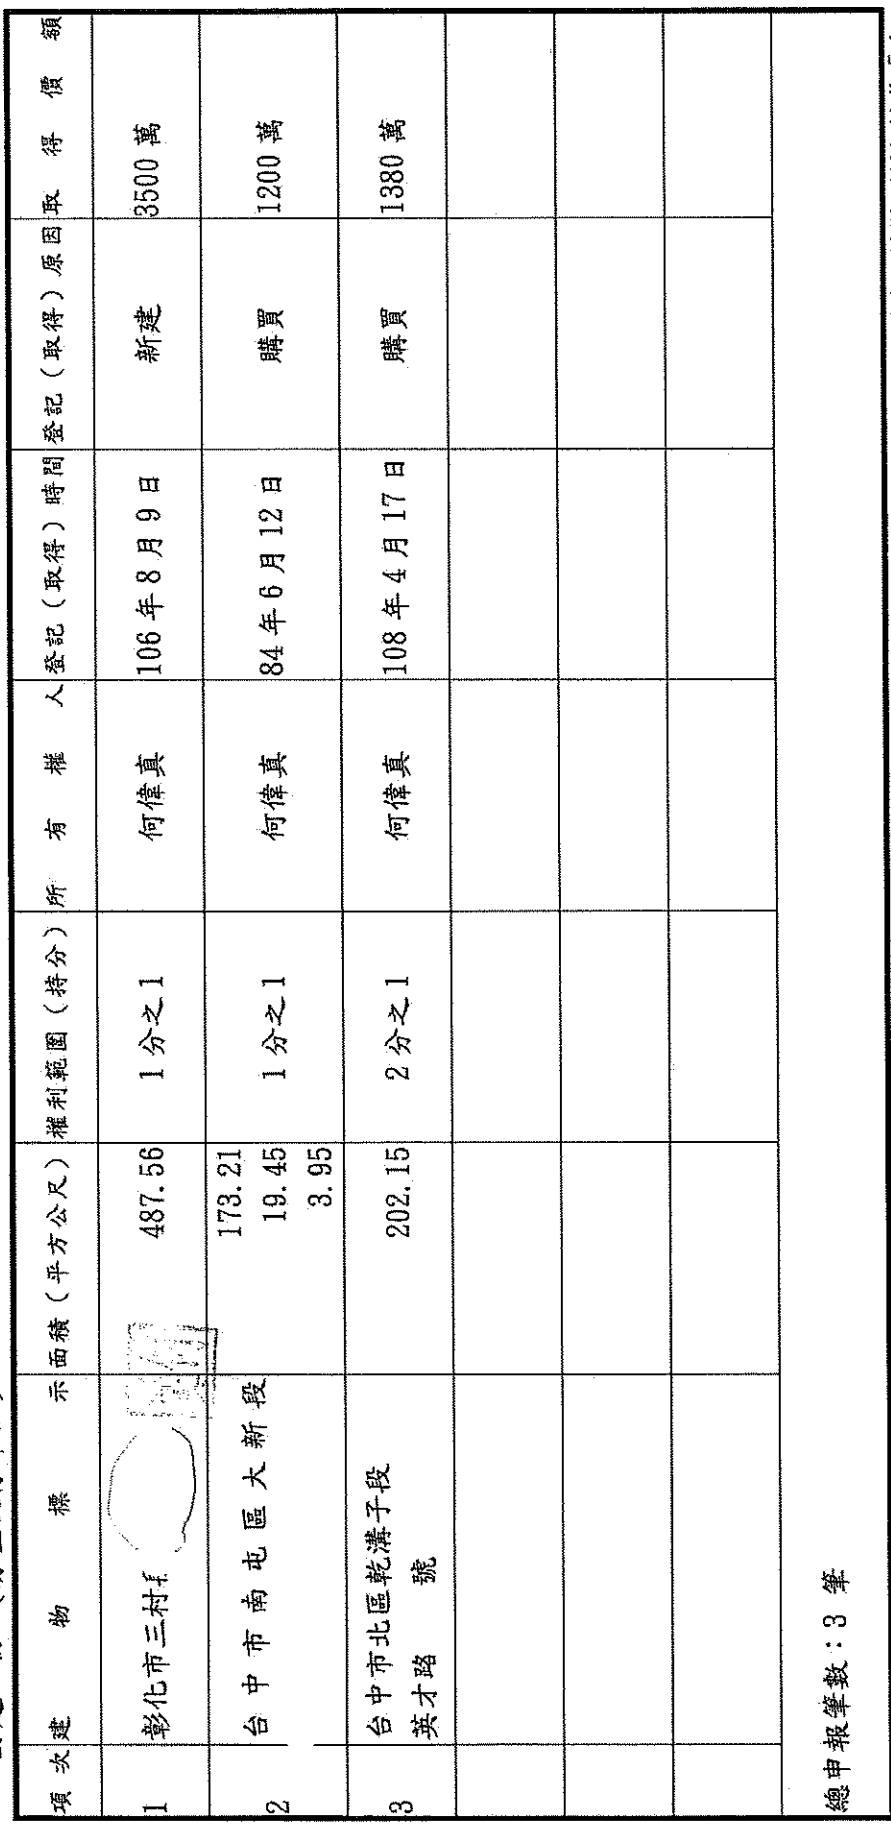 項次 建物標示 面積（平方公尺） 權利範圍（持分） 所有權人 登記（取得）時間 登記（取得）原因 取得價額
1 彰化市三村 487.56 1分之1 何偉真 106年8月9日 新建 3500萬
2 台中市南屯區大新段 173.21 1分之1 何偉真 84年6月12日 購買 1200萬
19.45
3.95
3 台中市北區乾溝子段 202.15 2分之1 何偉真 108年4月17日 購買 1380萬
英才路 號
總申報筆數：3 筆